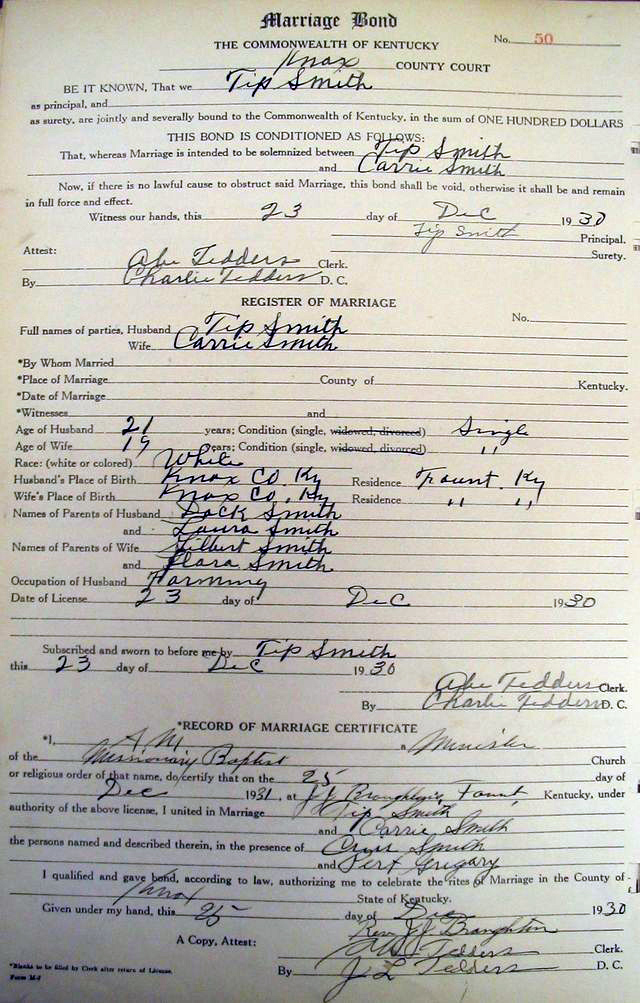 Marriage Bond
No. 50
THE COMMONWEALTH OF KENTUCKY
Knox COUNTY COURT
BE IT KNOWN, That we Tip Smith
as principal, and
as surety, are jointly and severally bound to the Commonwealth of Kentucky, in the sum of ONE HUNDRED DOLLARS
THIS BOND IS CONDITIONED AS FOLLOWS:
That, whereas Marriage is intended to be solemnized between Tip Smith
and Carrie Smith
Now, if there is no lawful cause to obstruct said Marriage, this bond shall be void, otherwise it shall be and remain
in full force and effect.
Witness our hands, this 23 day of Dec 1930
Tip Smith Principal.
Surety.
Attest:
Abe Tedders Clerk.
By Charlie Tedders D. C.
REGISTER OF MARRIAGE
No.
Full names of parties, Husband Tip Smith
Wife Carrie Smith
*By Whom Married
*Place of Marriage County of Kentucky.
*Date of Marriage
*Witnesses and
Age of Husband 21 years; Condition (single, widowed, divorced) Single
Age of Wife 19 years; Condition (single, widowed, divorced) "
Race: (white or colored) White
Husband's Place of Birth Knox Co. Ky Residence Fount, Ky
Wife's Place of Birth Knox Co, Ky Residence " "
Names of Parents of Husband Dock Smith
and Laura Smith
Names of Parents of Wife Gilbert Smith
and Flara Smith
Occupation of Husband Farming
Date of License 23 day of Dec 1930
Subscribed and sworn to before me by Tip Smith
this 23 day of Dec 1930
Abe Tedders Clerk.
By Charlie Tedders D. C.
*RECORD OF MARRIAGE CERTIFICATE
*I, a Minister
of the Missionary Baptist Church
or religious order of that name, do certify that on the 25 day of
Dec 1931, at J J Fount, Kentucky, under
authority of the above license, I united in Marriage Tip Smith
and Carrie Smith
the persons named and described therein, in the presence of Smith
and Gregary
I qualified and gave bond, according to law, authorizing me to celebrate the rites of Marriage in the County of
Knox State of Kentucky.
Given under my hand, this 25 day of Dec 1930
Rev. J J Broughton
A Copy, Attest: Tedders Clerk.
By J L Tedders D. C.
*Blanks to be filled by Clerk after return of License.